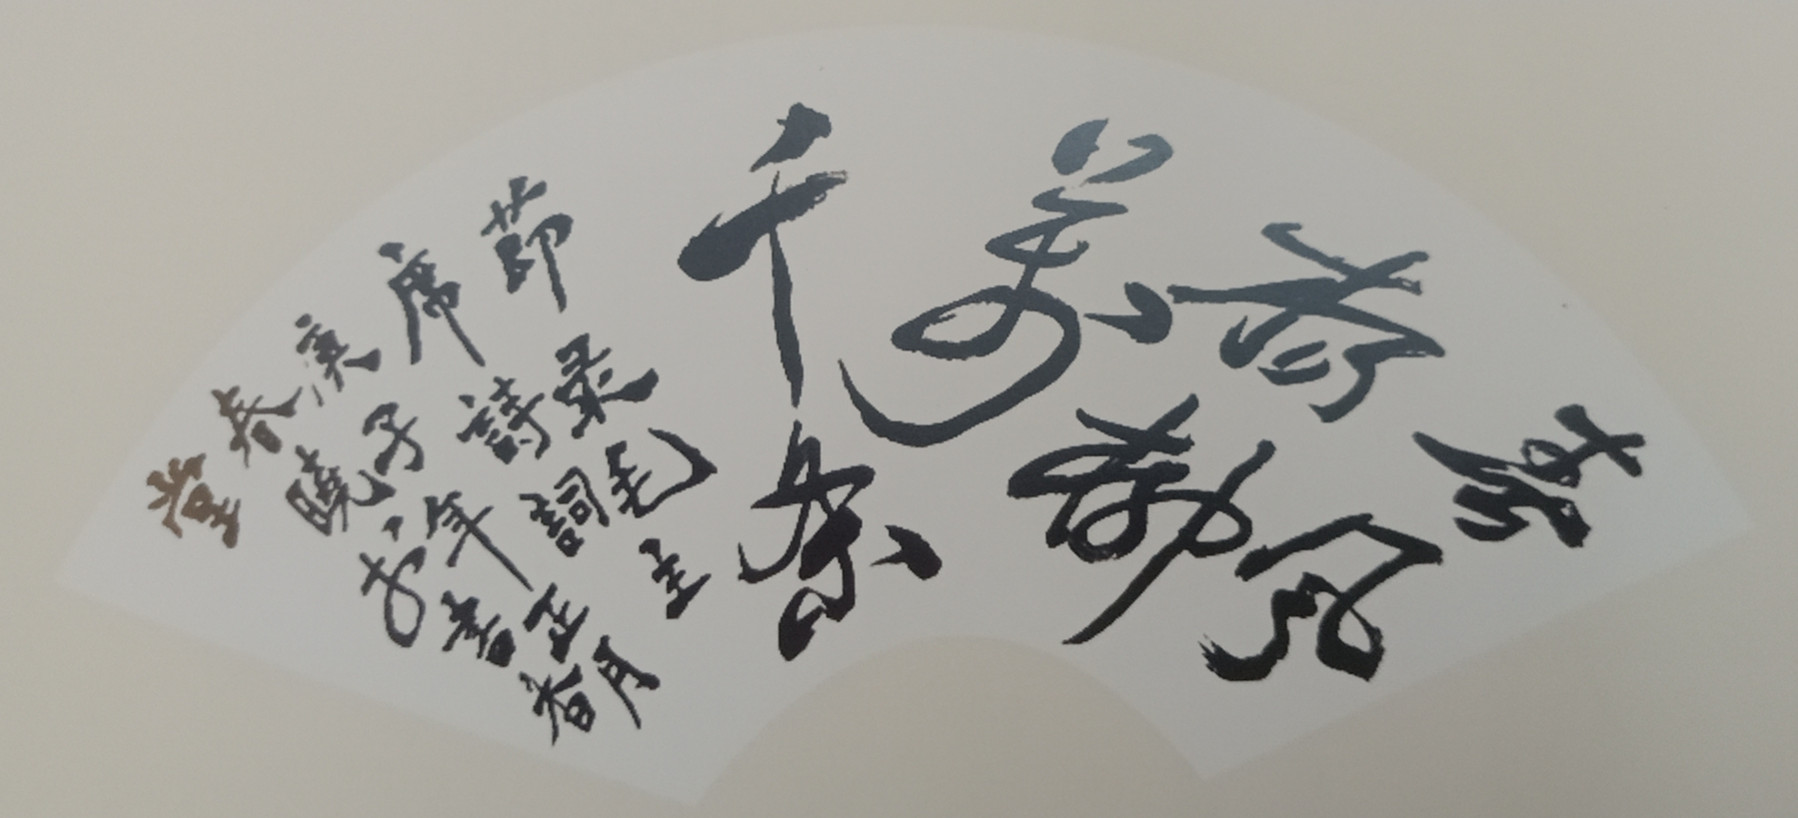 春風
楊柳
萬
千條
節录毛主
席詩詞
庚子年正月
春曉於書香
堂